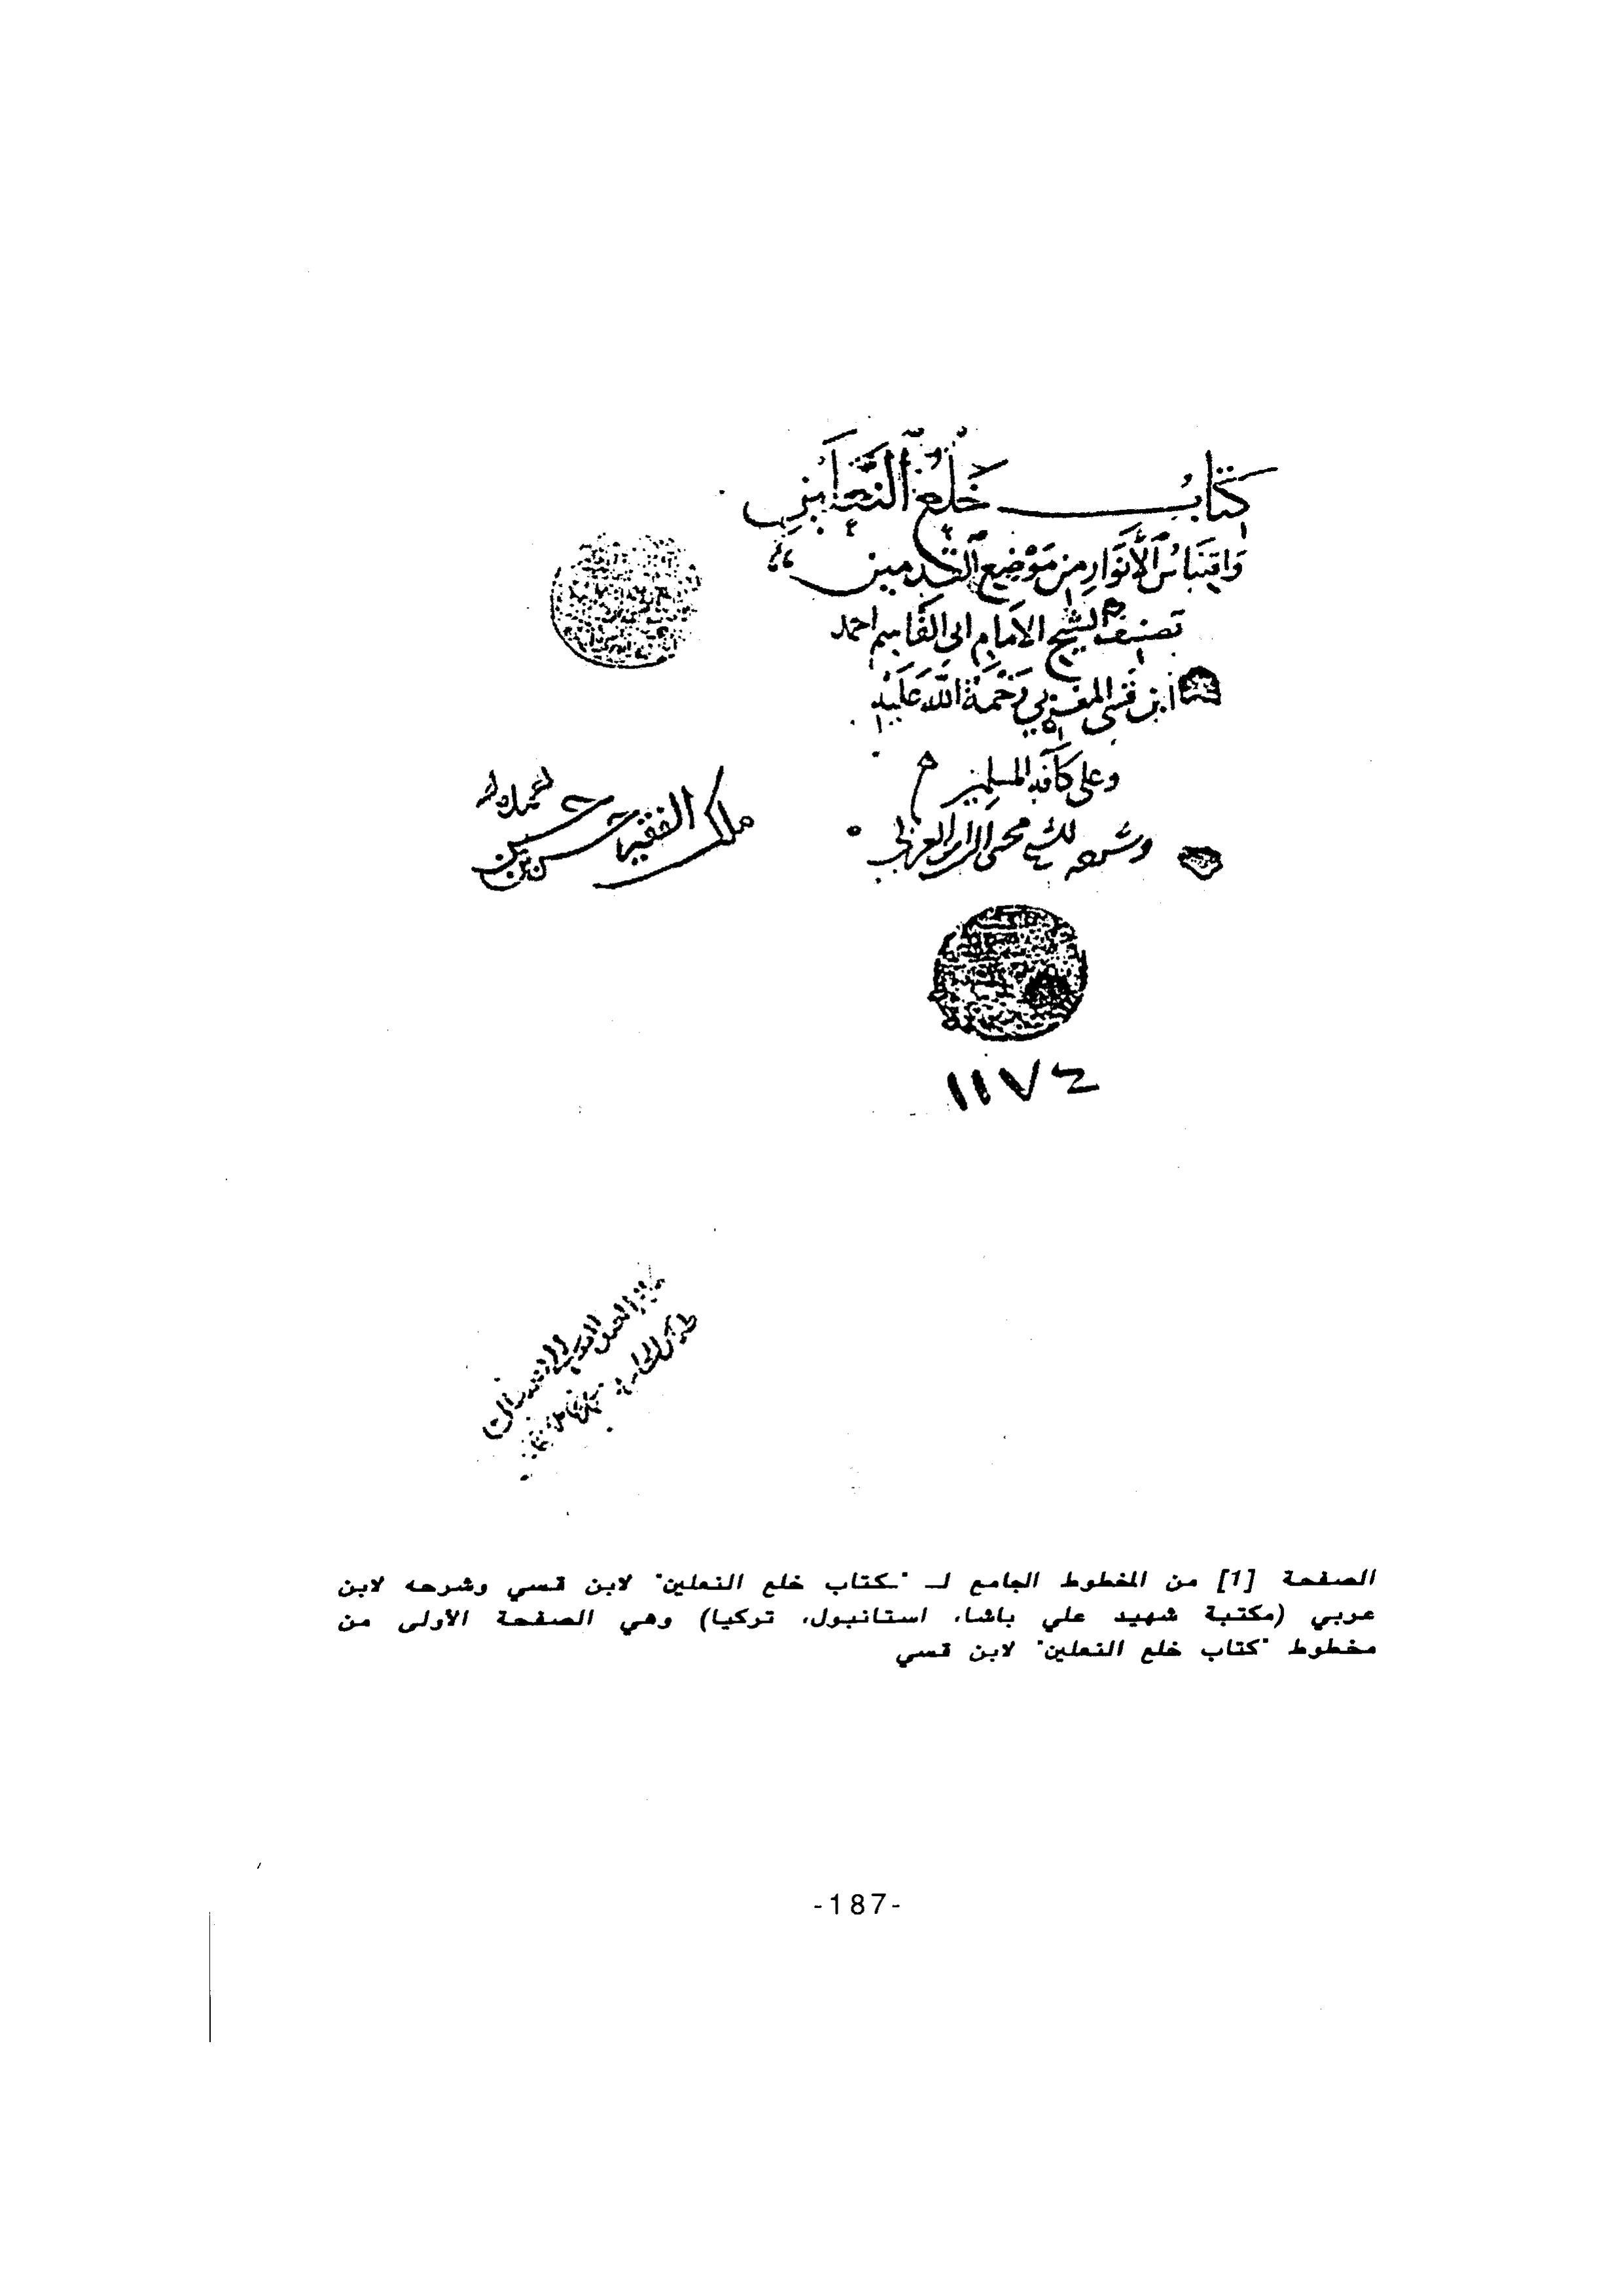 كتاب خَلْع النَّعْلَيْنِ
وَاقتِبَاسُ الأَنْوَارِ مِن مَوْضِعِ القدمين
تصنيف الشيخ الامام ابى القاسم احمد
ابن قسى المغربي رَحْمَةُ اللَّه عَلَيْهِ
وعلى كافة المسلمين
وشرحه للشيخ محى الدين العربي
ملك الفقير حسن بن
حسين
١١٧٤
الصفحة [1] من المخطوط الجامع لـ "كتاب خلع النعلين" لابن قسي وشرحه لابن
عربي (مكتبة شهيد علي باشا، استانبول، تركيا) وهي الصفحة الأولى من
مخطوط "كتاب خلع النعلين" لابن قسي
-187-